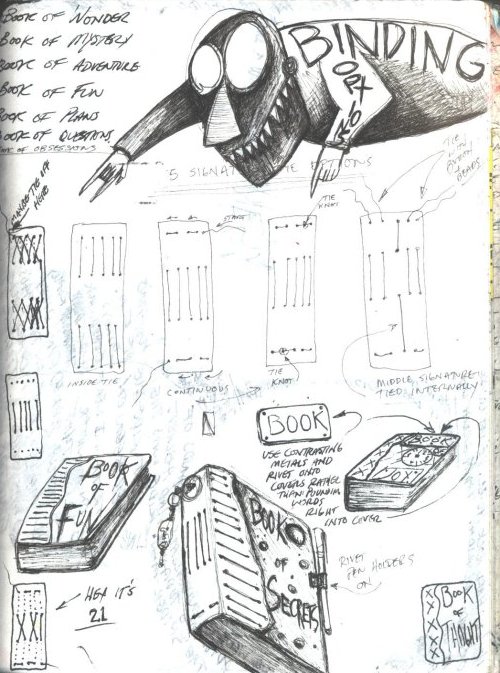 BOOK OF WONDER
BOOK OF MYSTERY
BOOK OF ADVENTURE
BOOK OF FUN
BOOK OF PLANS
BOOK OF QUESTIONS
BOOK OF OBSESSIONS
BINDING
OPTIONS
5 SIGNATURE TIE OPTIONS
TIE
IN
BEADS
TIE OFF
HERE
STARS
TIE
KNOT
INSIDE TIE
CONTINUOUS
TIE
KNOT
MIDDLE SIGNATURE
TIED INTERNALLY
BOOK
USE CONTRASTING
METALS AND
RIVET ONTO
COVERS RATHER
THAN POUNDING
WORDS
RIGHT
INTO COVER
BOOK
BOOK
OF
FUN
BOOK
OF
SECRETS
RIVET
PEN HOLDERS
ON
HEY IT'S
21
XXI
BOOK
OF
THOUGHT